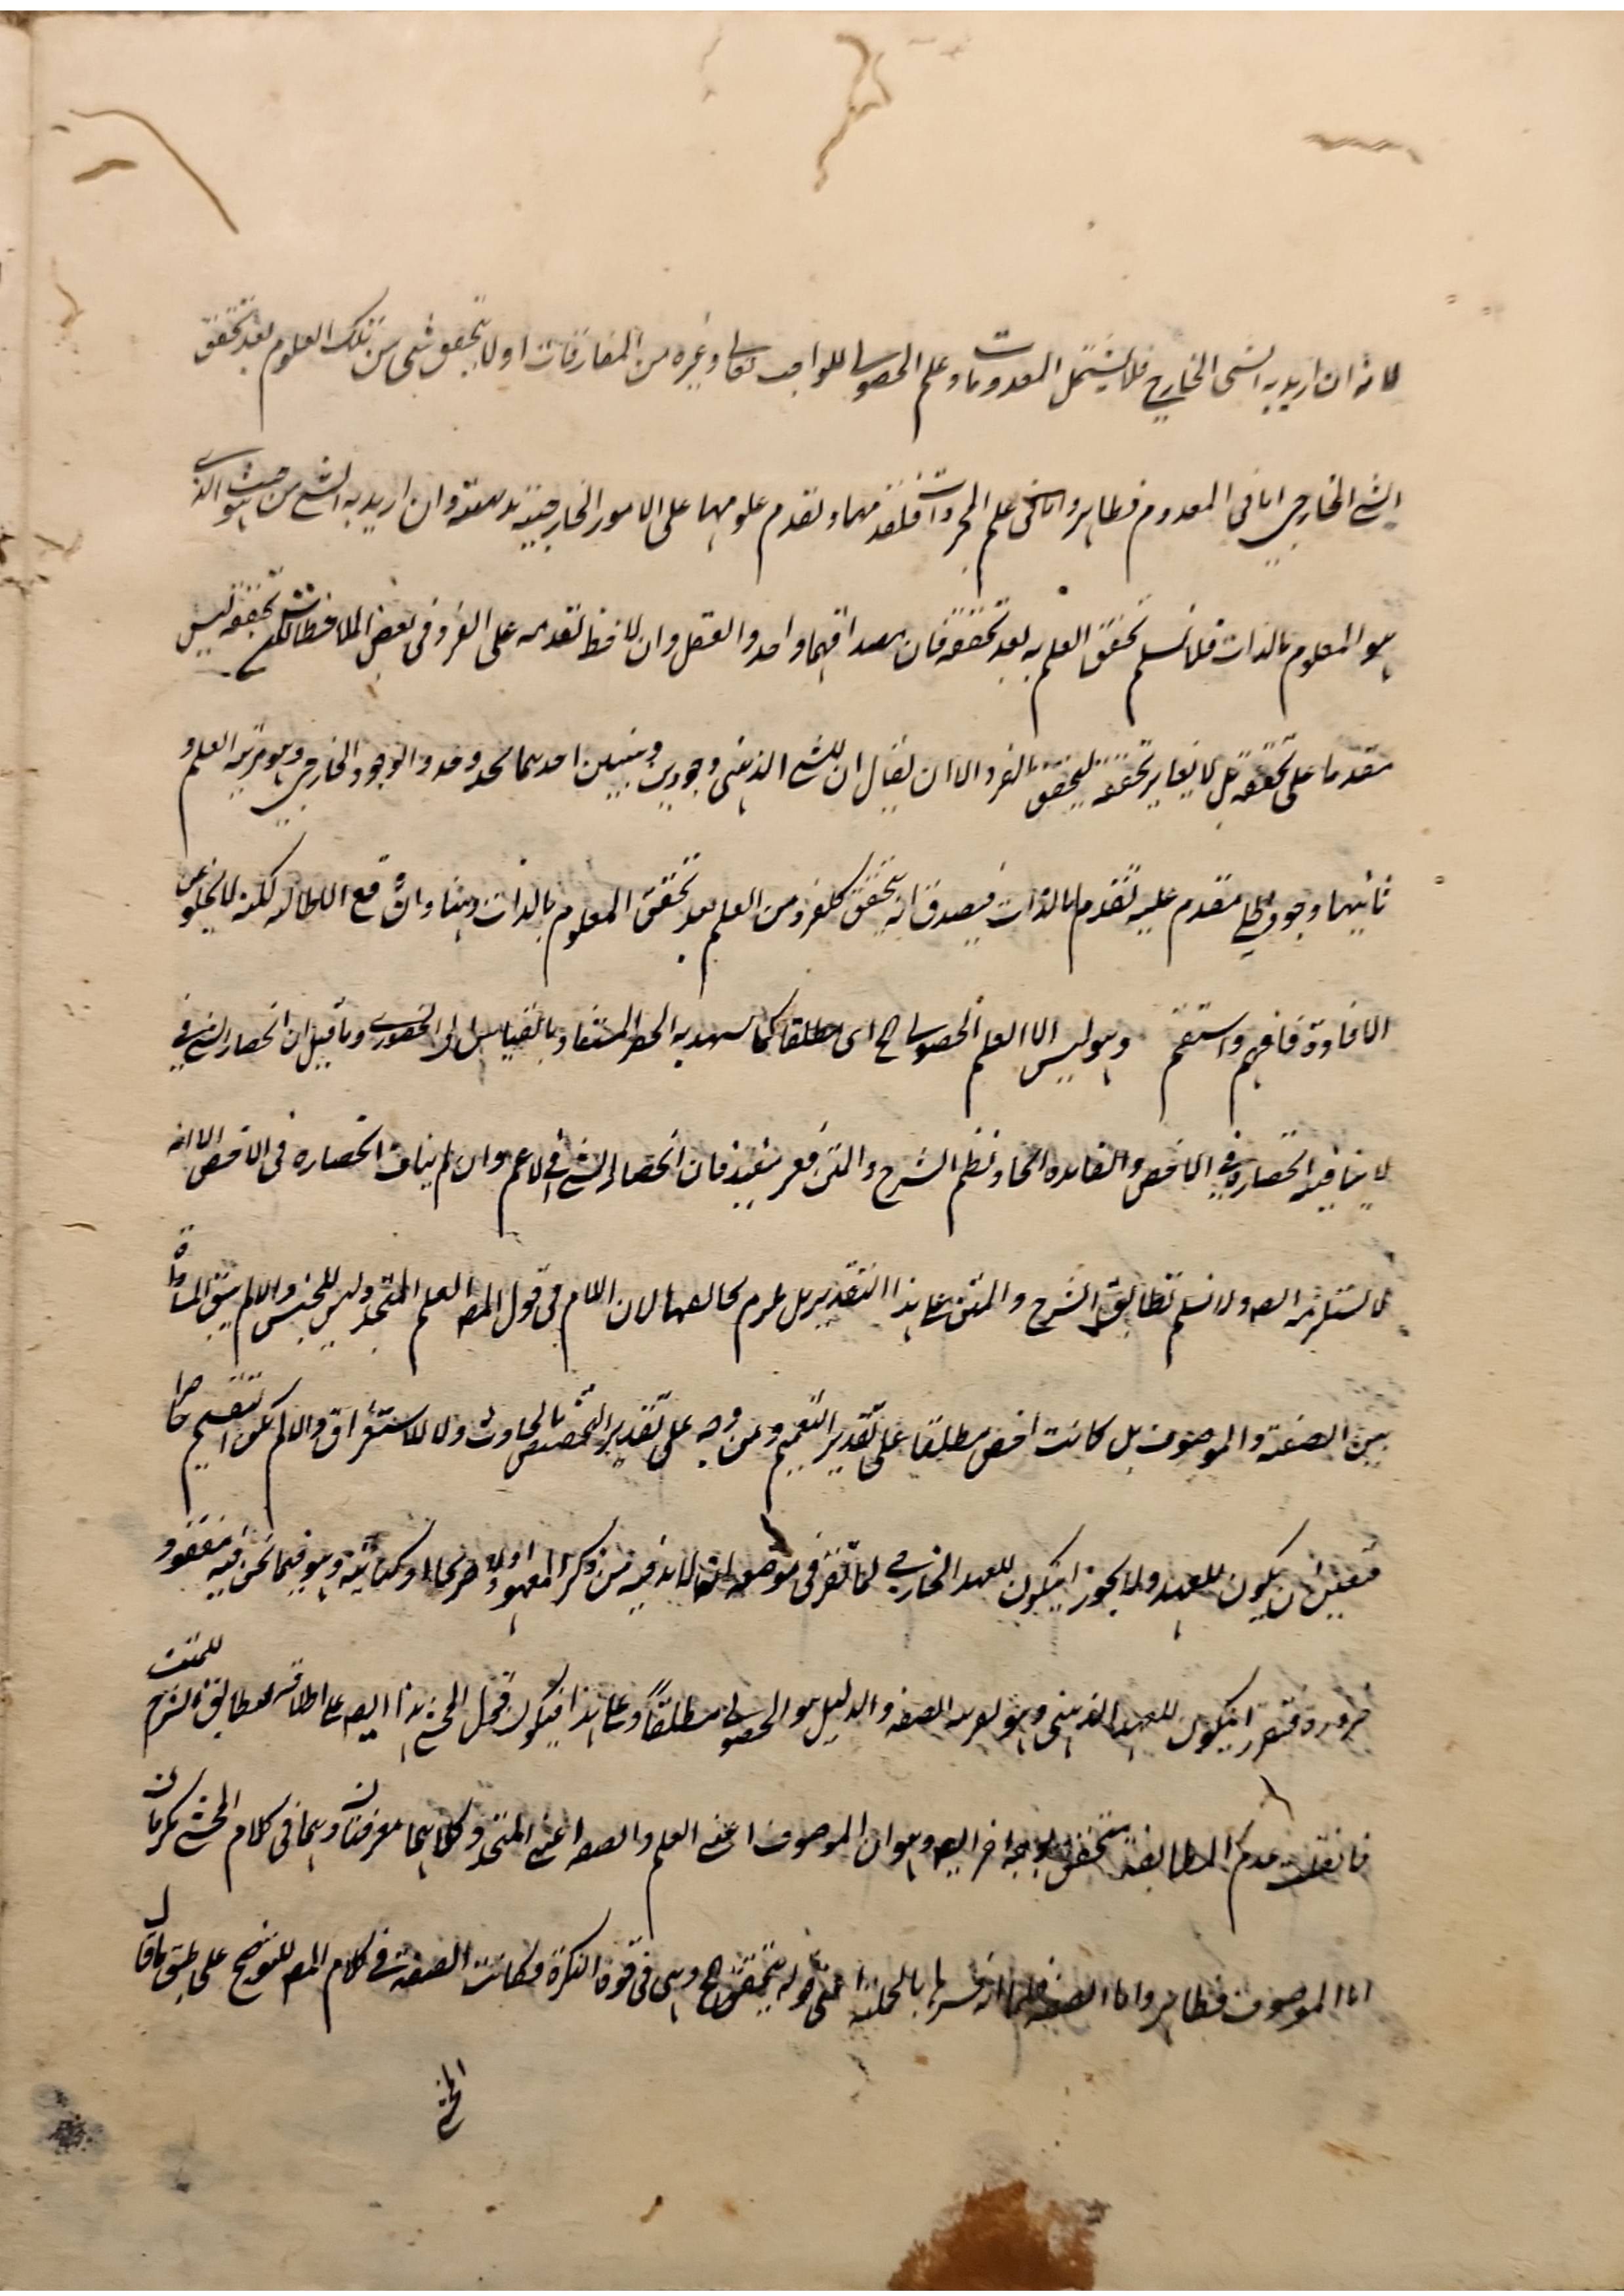 لانه ان اريد به الشى الخارجي فلا يشتمل المعدومات وعلم الحصولي للواجب تعالى وغيره من المفارقات اولا يتحقق شى من تلك العلوم بعد تحقق
الشئ الخارجي اما في المعدوم فظاهر واما فى علم المجردات فلتقدمها وتقدم علومها على الامور الخارجية وان اريد به الشئ من حيث هو الذى
هو المعلوم بالذات فلا نسلم تحقق العلم به بعد تحققه فان مصداقهما واحد والعقل وان لاحظ تقدمه على الفرد في بعض الملاحظات لكن تحققه ليس
متقدما على تحققه بل لا يغاير تحققه لتحقق الفرد الا ان يقال ان للشئ الذهني وجودين احدهما يحذو حذو الوجود الخارجي وهو مرتبة العلم و
ثانيهما وجود ظلي متقدم عليه تقدما بالذات فيصدق انه يتحقق كل فرد من العلم بعد تحقق المعلوم بالذات وهذا وان قع الاطالة لكنه لا يخلو عن
الافادة فافهم واستقم وهو ليس الا العلم الحصولي ح اى مطلقا كما يشهد به الحصر المستفاد بالقياس الى الحضورى وما قيل ان انحصار الشئ في
لا ينافيه انحصاره في الاخص والفائدة اتحاد نظم الشرح والمتن فغير مفيد فان انحصار الشئ في الاعم وان لم يناف انحصاره فى الاخص الا انه
لا يستلزمه ايضا ولا نسلم تطابق الشرح والمتن على هذا التقدير بل يلزم تخالفهما لان اللام في قول المصـ العلم المتجدد ليس للجنس والا لم يبق المساواة
بين الصفة والموصوف بل كانت اخص مطلقا على تقدير التعميم ومن وجه على تقدير التخصيص بالحادث ولا للاستغراق والا لم يكن التقسيم حاصرا
فتعين ان يكون للعهد ولا يجوز ان يكون للعهد الخارجي لما تقرر في موضعه انه لا بد فيه من ذكر المعهود اولا صريحا او كناية وهو فيما نحن فيه مفقود
ضرورة فتقرر ان يكون للعهد الذهني وهو لعريـه الصفه والدليل هو الحصولي مطلقاً وعلى هذا فيكون قول المحشي هذا ايضا على اطلاقه لمطابق الشرح للمتن
فان قلت عدم المطابقة متحقق بوجه اخر ايضا وهو ان الموصوف اعني العلم والصفة اعني المتجدد كلاهما معرفتان وهما في كلام المحشي نكرتان
اما الموصوف فظاهر واما الصفة فلما انه فسرها بالجملة اعنى قوله يتحقق الخ وهى في قوة النكرة فكانت الصفة في كلام المصـ للتوضيح على طبق ما قال
المحشي